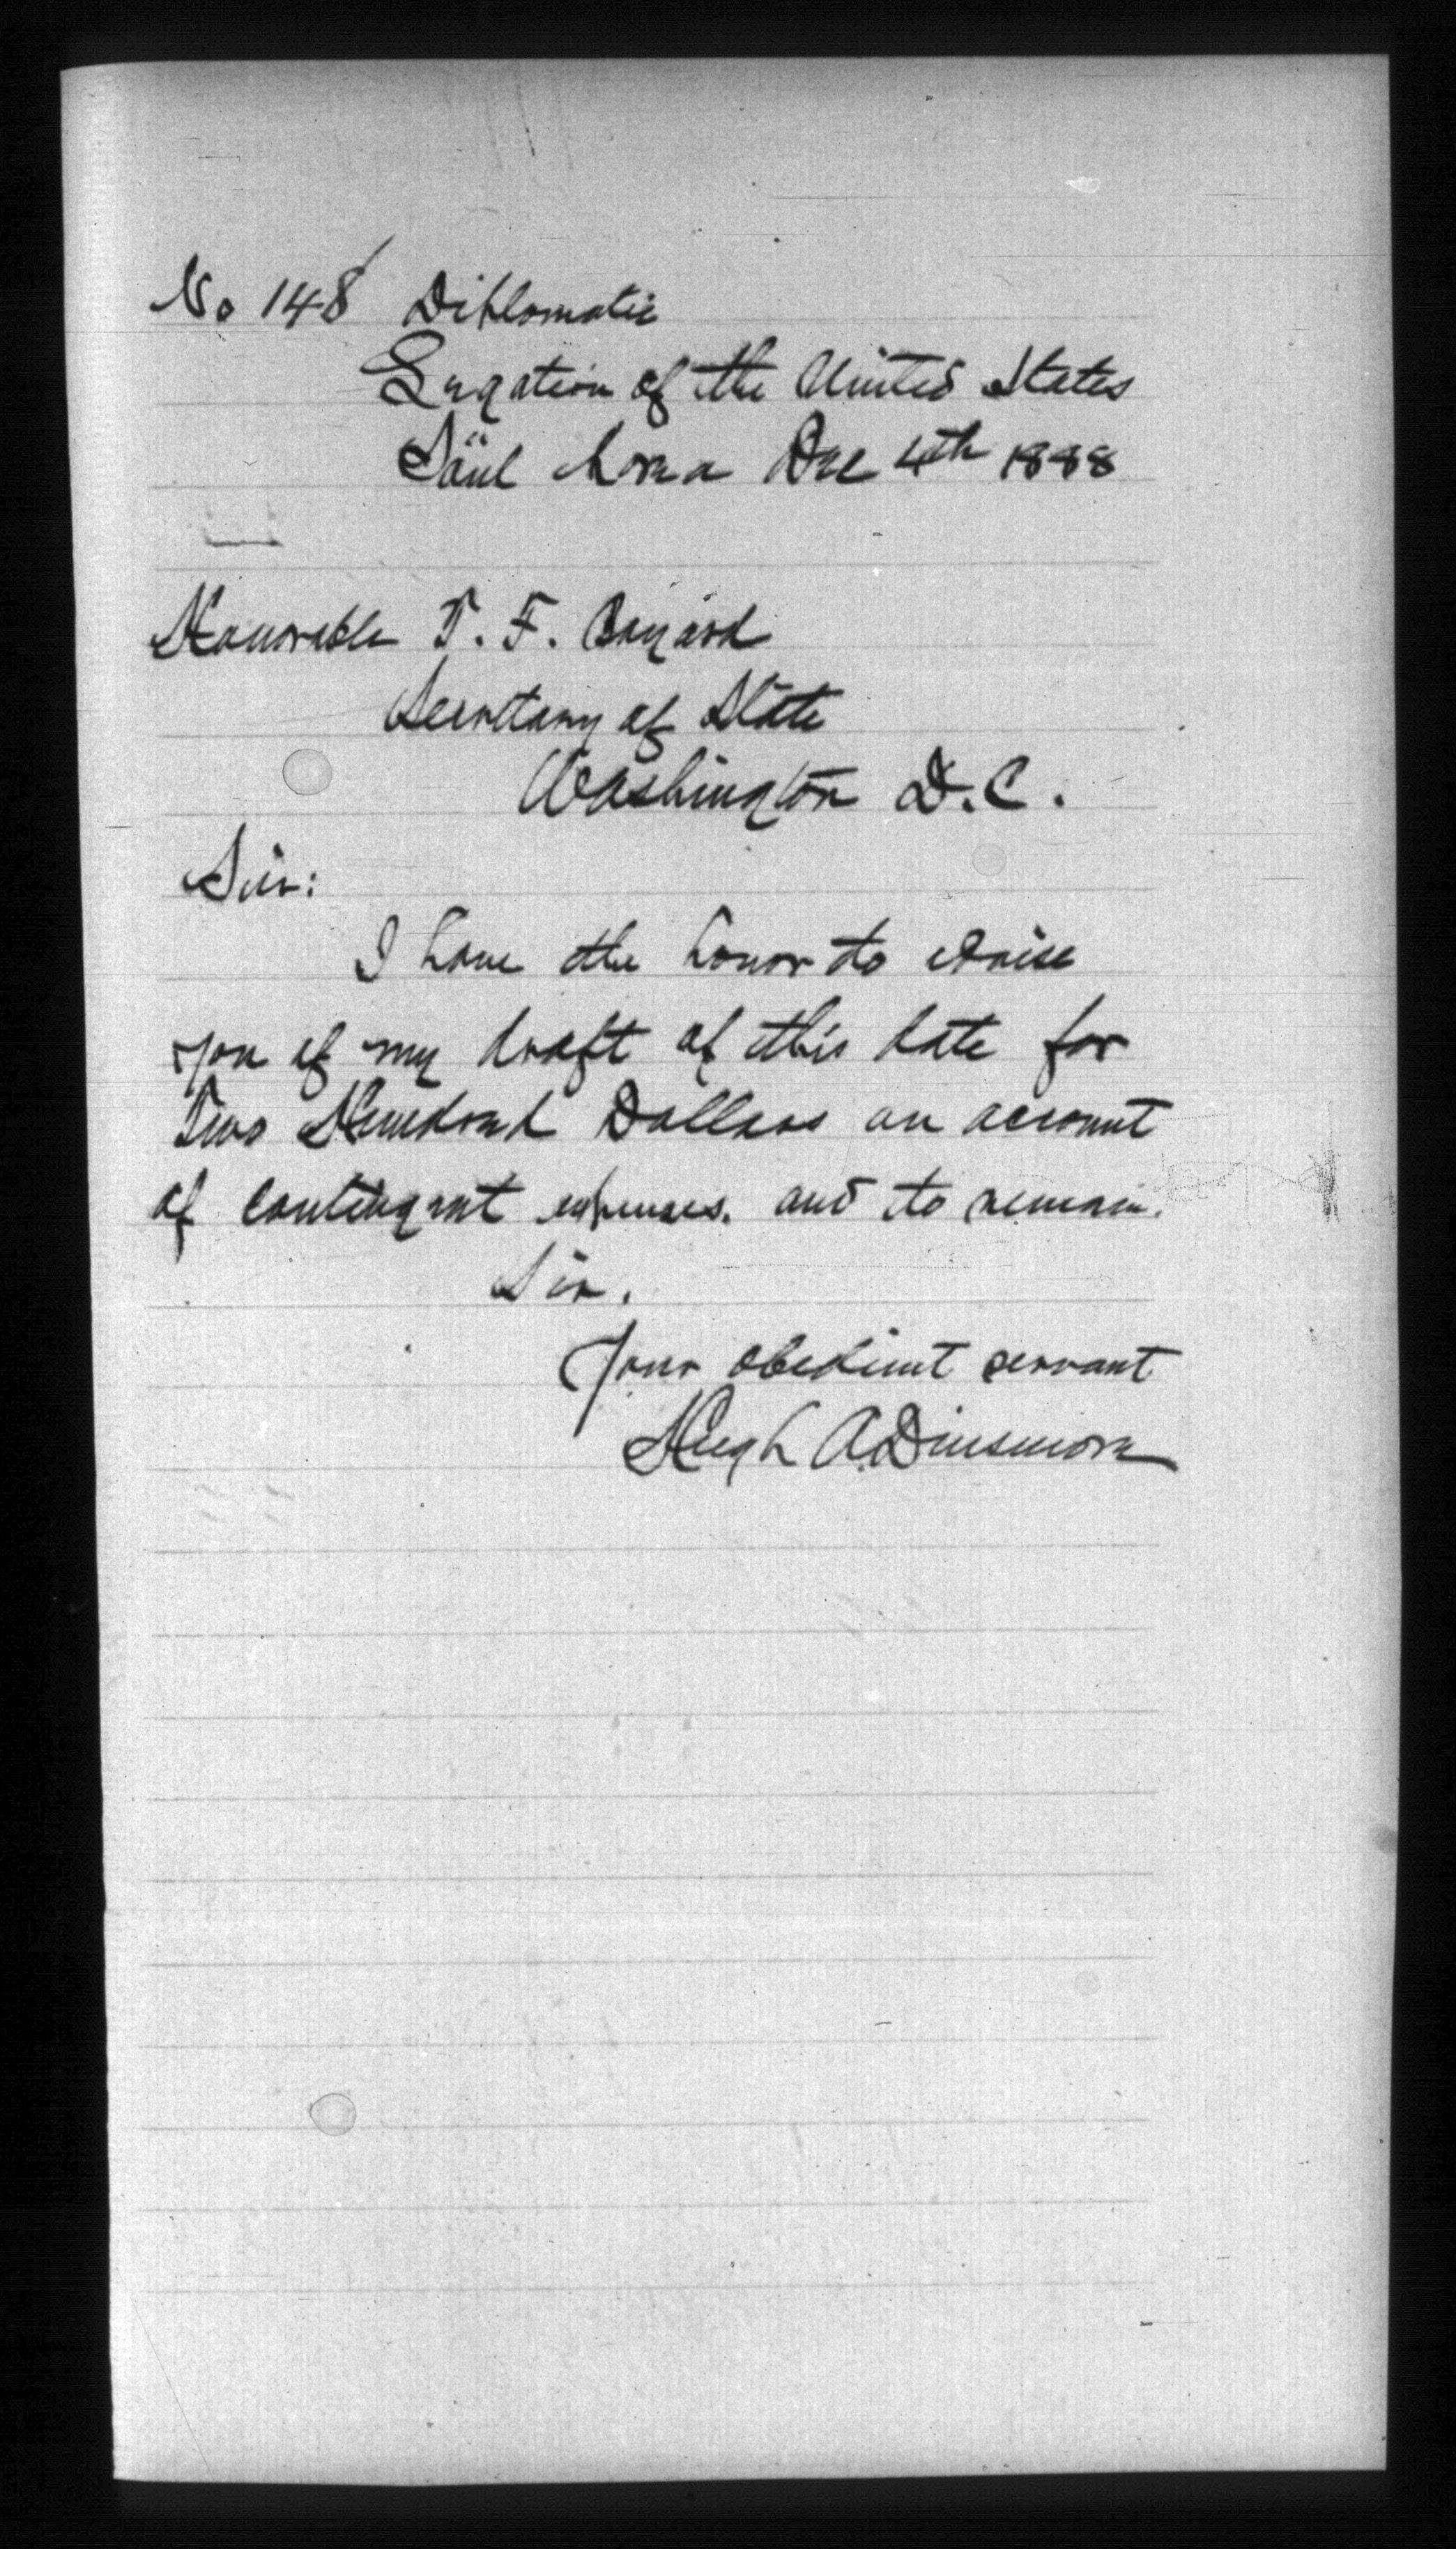 No 148 Diplomatic
Legation of the United States
Söul Korea Dec 4th 1888
Honorable T. F. Bayard
Secretary of State
Washington D.C.
Sir:
I have the honor to advise
you of my draft of this date for
Two Hundred Dollars on account
of contingent expenses. and to remain.
Sir.
Your obedient servant
Hugh A. Dinsmore